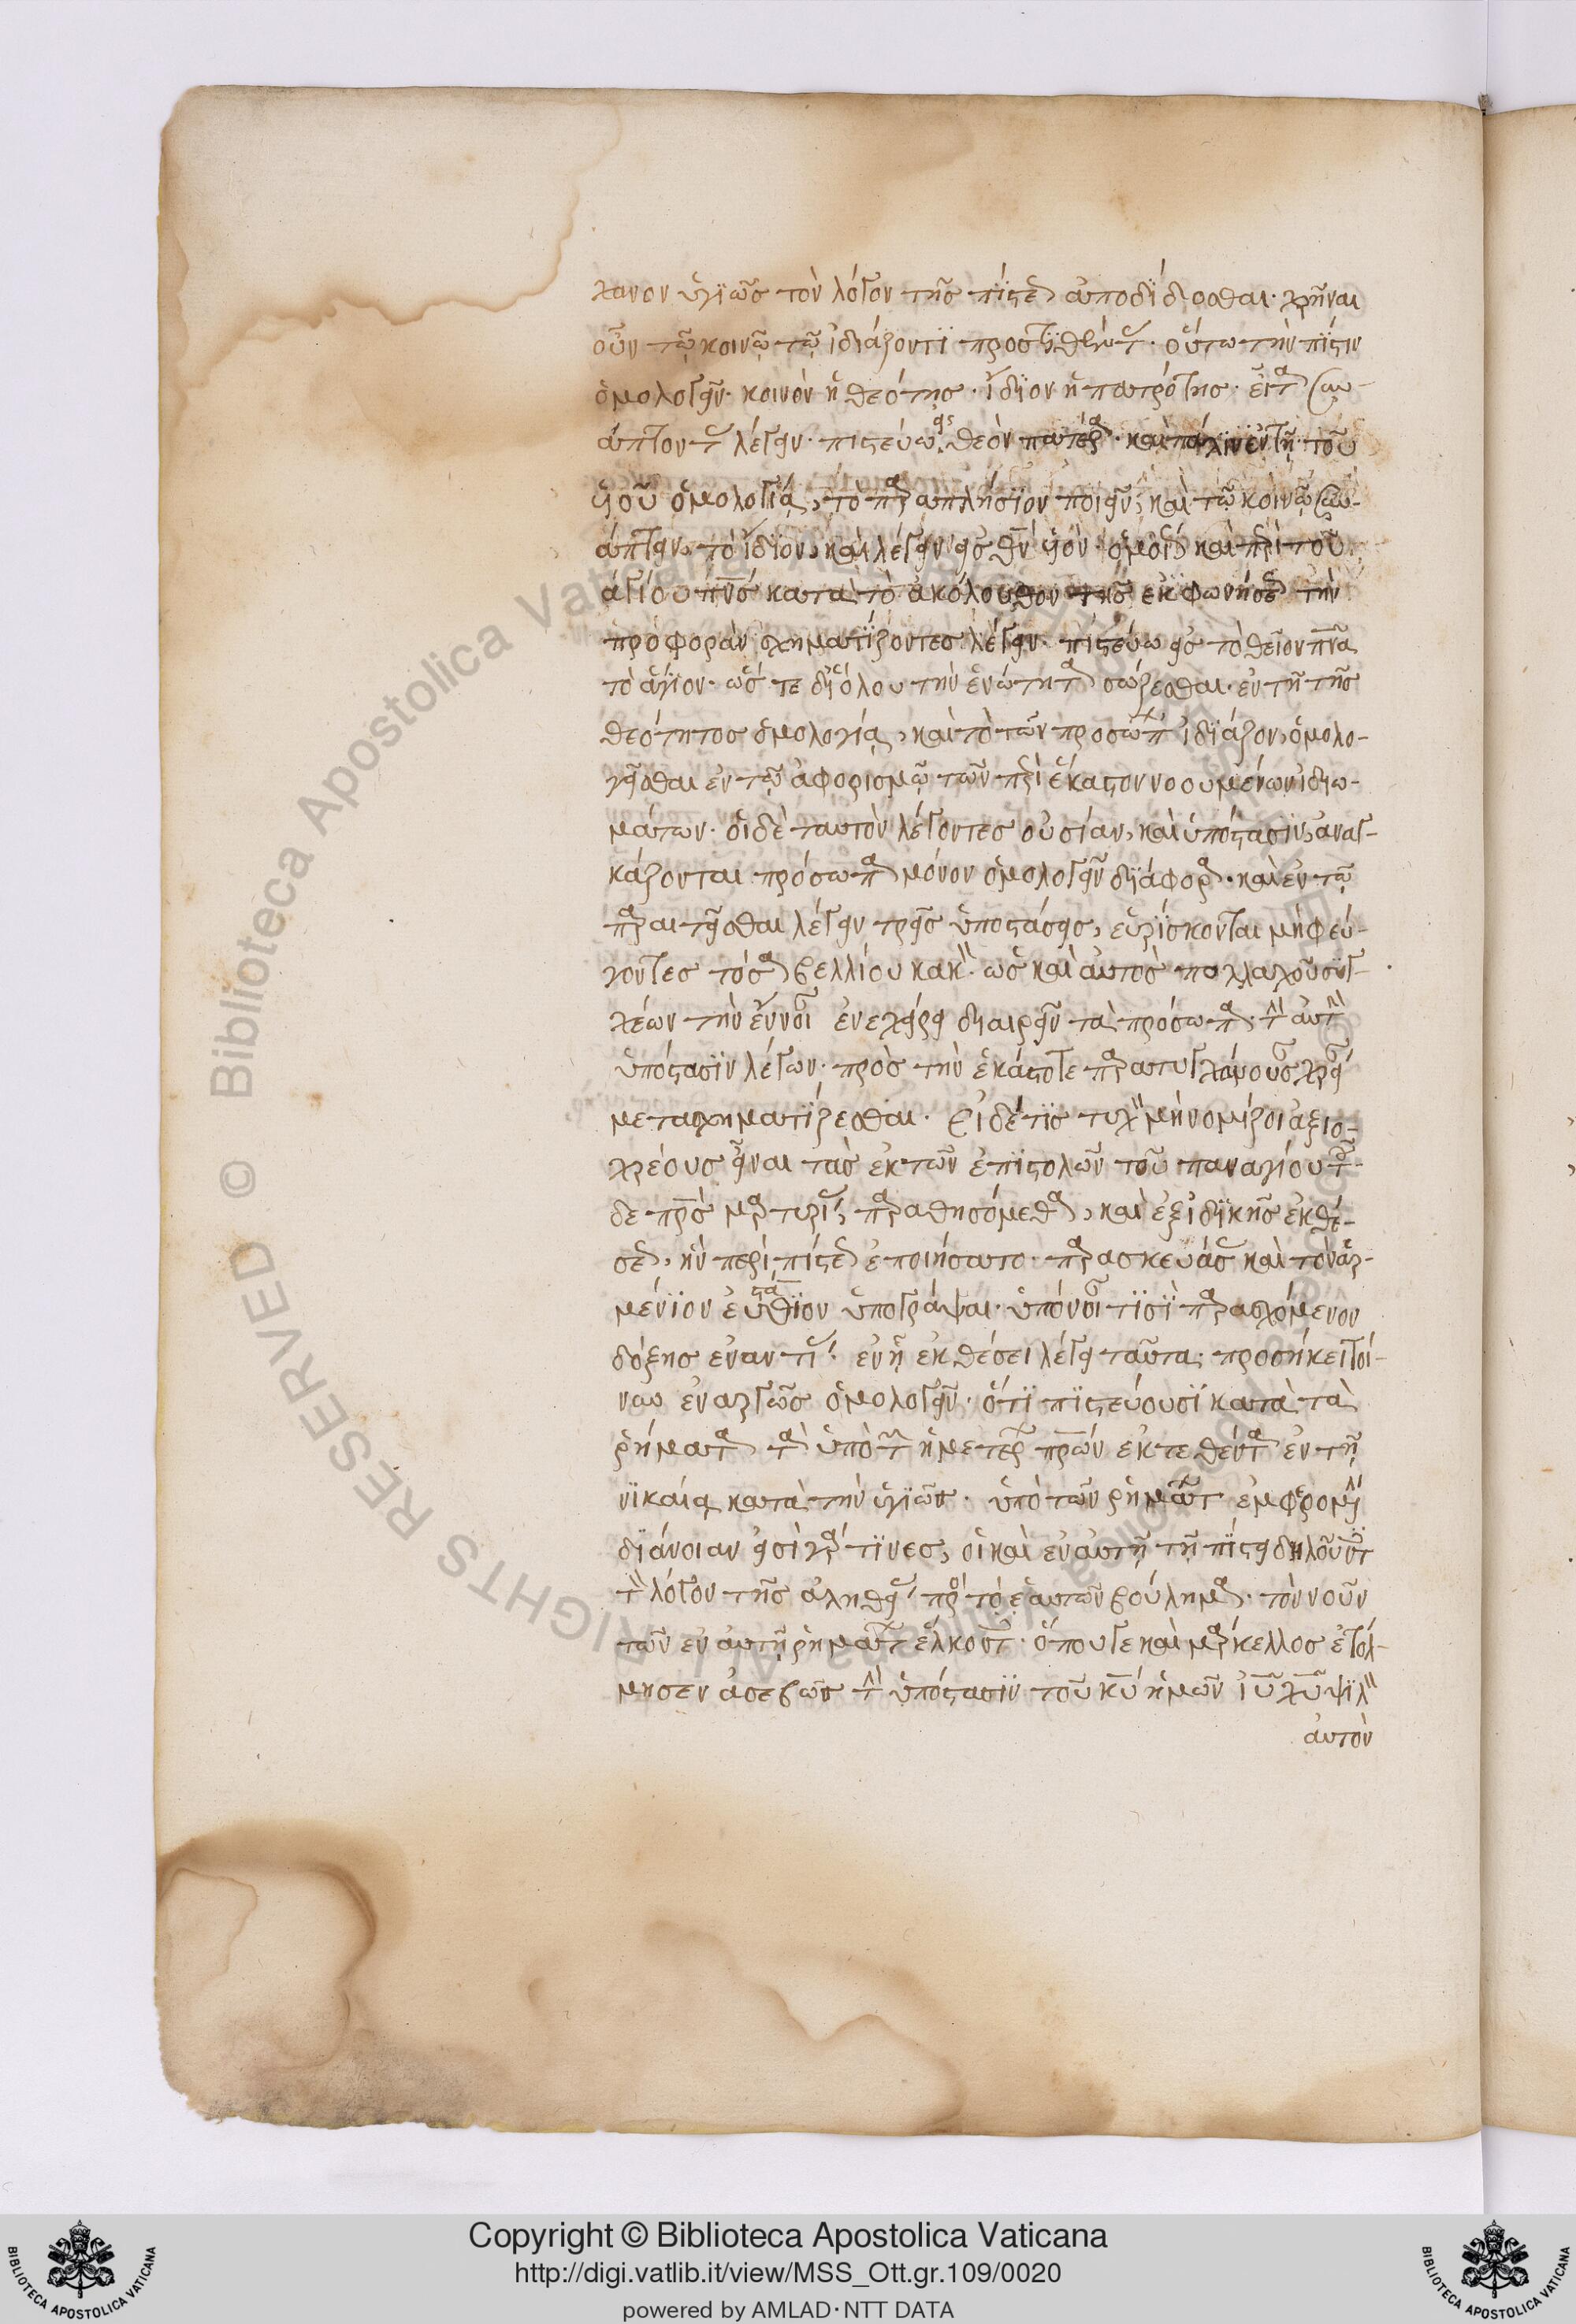 χανον ὑγιῶς τὸν λόγον τῆς πίστεως ἀποδίδοσθαι· χρῆναι
οὖν τῷ κοινῷ τῷ ἰδιάζοντι προστιθέντας· οὕτω τὴν πίστιν
ὁμολογεῖν· κοινὸν ἡ θεότης· ἴδιον ἡ πατρότης· εἶτα συν-
άπτοντας λέγειν· πιστεύω εἰς θεὸν πατέρα· καὶ πάλιν ἐν τῇ τοῦ
υἱοῦ ὁμολογίᾳ, τὸ παραπλήσιον ποιεῖν, καὶ τῷ κοινῷ συν-
άπτειν τὸ ἴδιον, καὶ λέγειν εἰς θν υἱόν· ὁμοίως καὶ περὶ τοῦ
ἁγίου πνς κατὰ τὸ ἀκόλουθον τῆς ἐκφωνήσεως τὴν
προφορὰν σχηματίζοντες λέγειν· πιστεύω εἰς τὸ θεῖον πνα
τὸ ἅγιον· ὥστε δι' ὅλου τὴν ἑνότητα σώζεσθαι· ἐν τῇ τῆς
θεότητος ὁμολογίᾳ, καὶ τὸ τῶν προσώπων ἰδιάζον, ὁμολο-
γεῖσθαι ἐν τῷ ἀφορισμῷ τῶν περὶ ἕκαστον νοουμένων ἰδιω-
μάτων· οἱ δὲ ταυτὸν λέγοντες οὐσίαν, καὶ ὑπόστασιν, ἀναγ-
κάζονται πρόσωπα μόνον ὁμολογεῖν διάφορα· καὶ ἐν τῷ
παραιτεῖσθαι λέγειν τρεῖς ὑποστάσεις, εὑρίσκονται μὴ φεύ-
γοντες τὸ σαβελλίου κακόν· ὡς καὶ αὐτὸς πολλαχοῦ συγ-
χέων τὴν ἔννοιαν ἐνεχείρει διαιρεῖν τὰ πρόσωπα· τὴν αὐτὴν
ὑπόστασιν λέγων· πρὸς τὴν ἑκάστοτε παρατυγχάνουσαν χρείαν
μετασχηματίζεσθαι. Εἰ δέ τις τυχὸν μὴ νομίζοι ἀξιο-
χρέους εἶναι τὰς ἐκ τῶν ἐπιστολῶν τοῦ παναγίου τοῦ-
δε πρς μαρτυρίας, παραθησόμεθα, καὶ ἐξ ἰδικῆς ἐκθέ-
σεως, ἣν περὶ πίστεως ἐποιήσατο· παρασκευάσας καὶ τὸν ἀρ-
μένιον εὐστάθιον ὑπογράψαι· ὑπόνοιαν τισὶ παρασχόμενον
δόξης ἐναντίας· ἐν ᾗ ἐκθέσει λέγει ταῦτα· προσήκει τοί-
νυν ἐναργῶς ὁμολογεῖν· ὅτι πιστεύουσι κατὰ τὰ
ῥήματα τὰ ὑπὸ τῶν ἡμετέρων πρων ἐκτεθέντα ἐν τῇ
νικαίᾳ κατὰ τὴν ὑγιῶς· ὑπὸ τῶν ῥημάτων ἐμφερομένην
διάνοιαν εἰσὶ γάρ τινες, οἱ καὶ ἐν αὐτῇ τῇ πίστει δηλοῦντες
τὸν λόγον τῆς ἀληθείας πρὸς τὸ ἑαυτῶν βούλημα· τὸν νοῦν
τῶν ἐν αὐτῇ ῥημάτων ἕλκοντες· ὅπου γε καὶ μάρκελλος ἐτόλ-
μησεν ἀσεβῶν τὴν ὑπόστασιν τοῦ κυ ἡμῶν ιυ χυ ψιλὸν
αὐτὸν
Copyright © Biblioteca Apostolica Vaticana
http://digi.vatlib.it/view/MSS_Ott.gr.109/0020
powered by AMLAD·NTT DATA